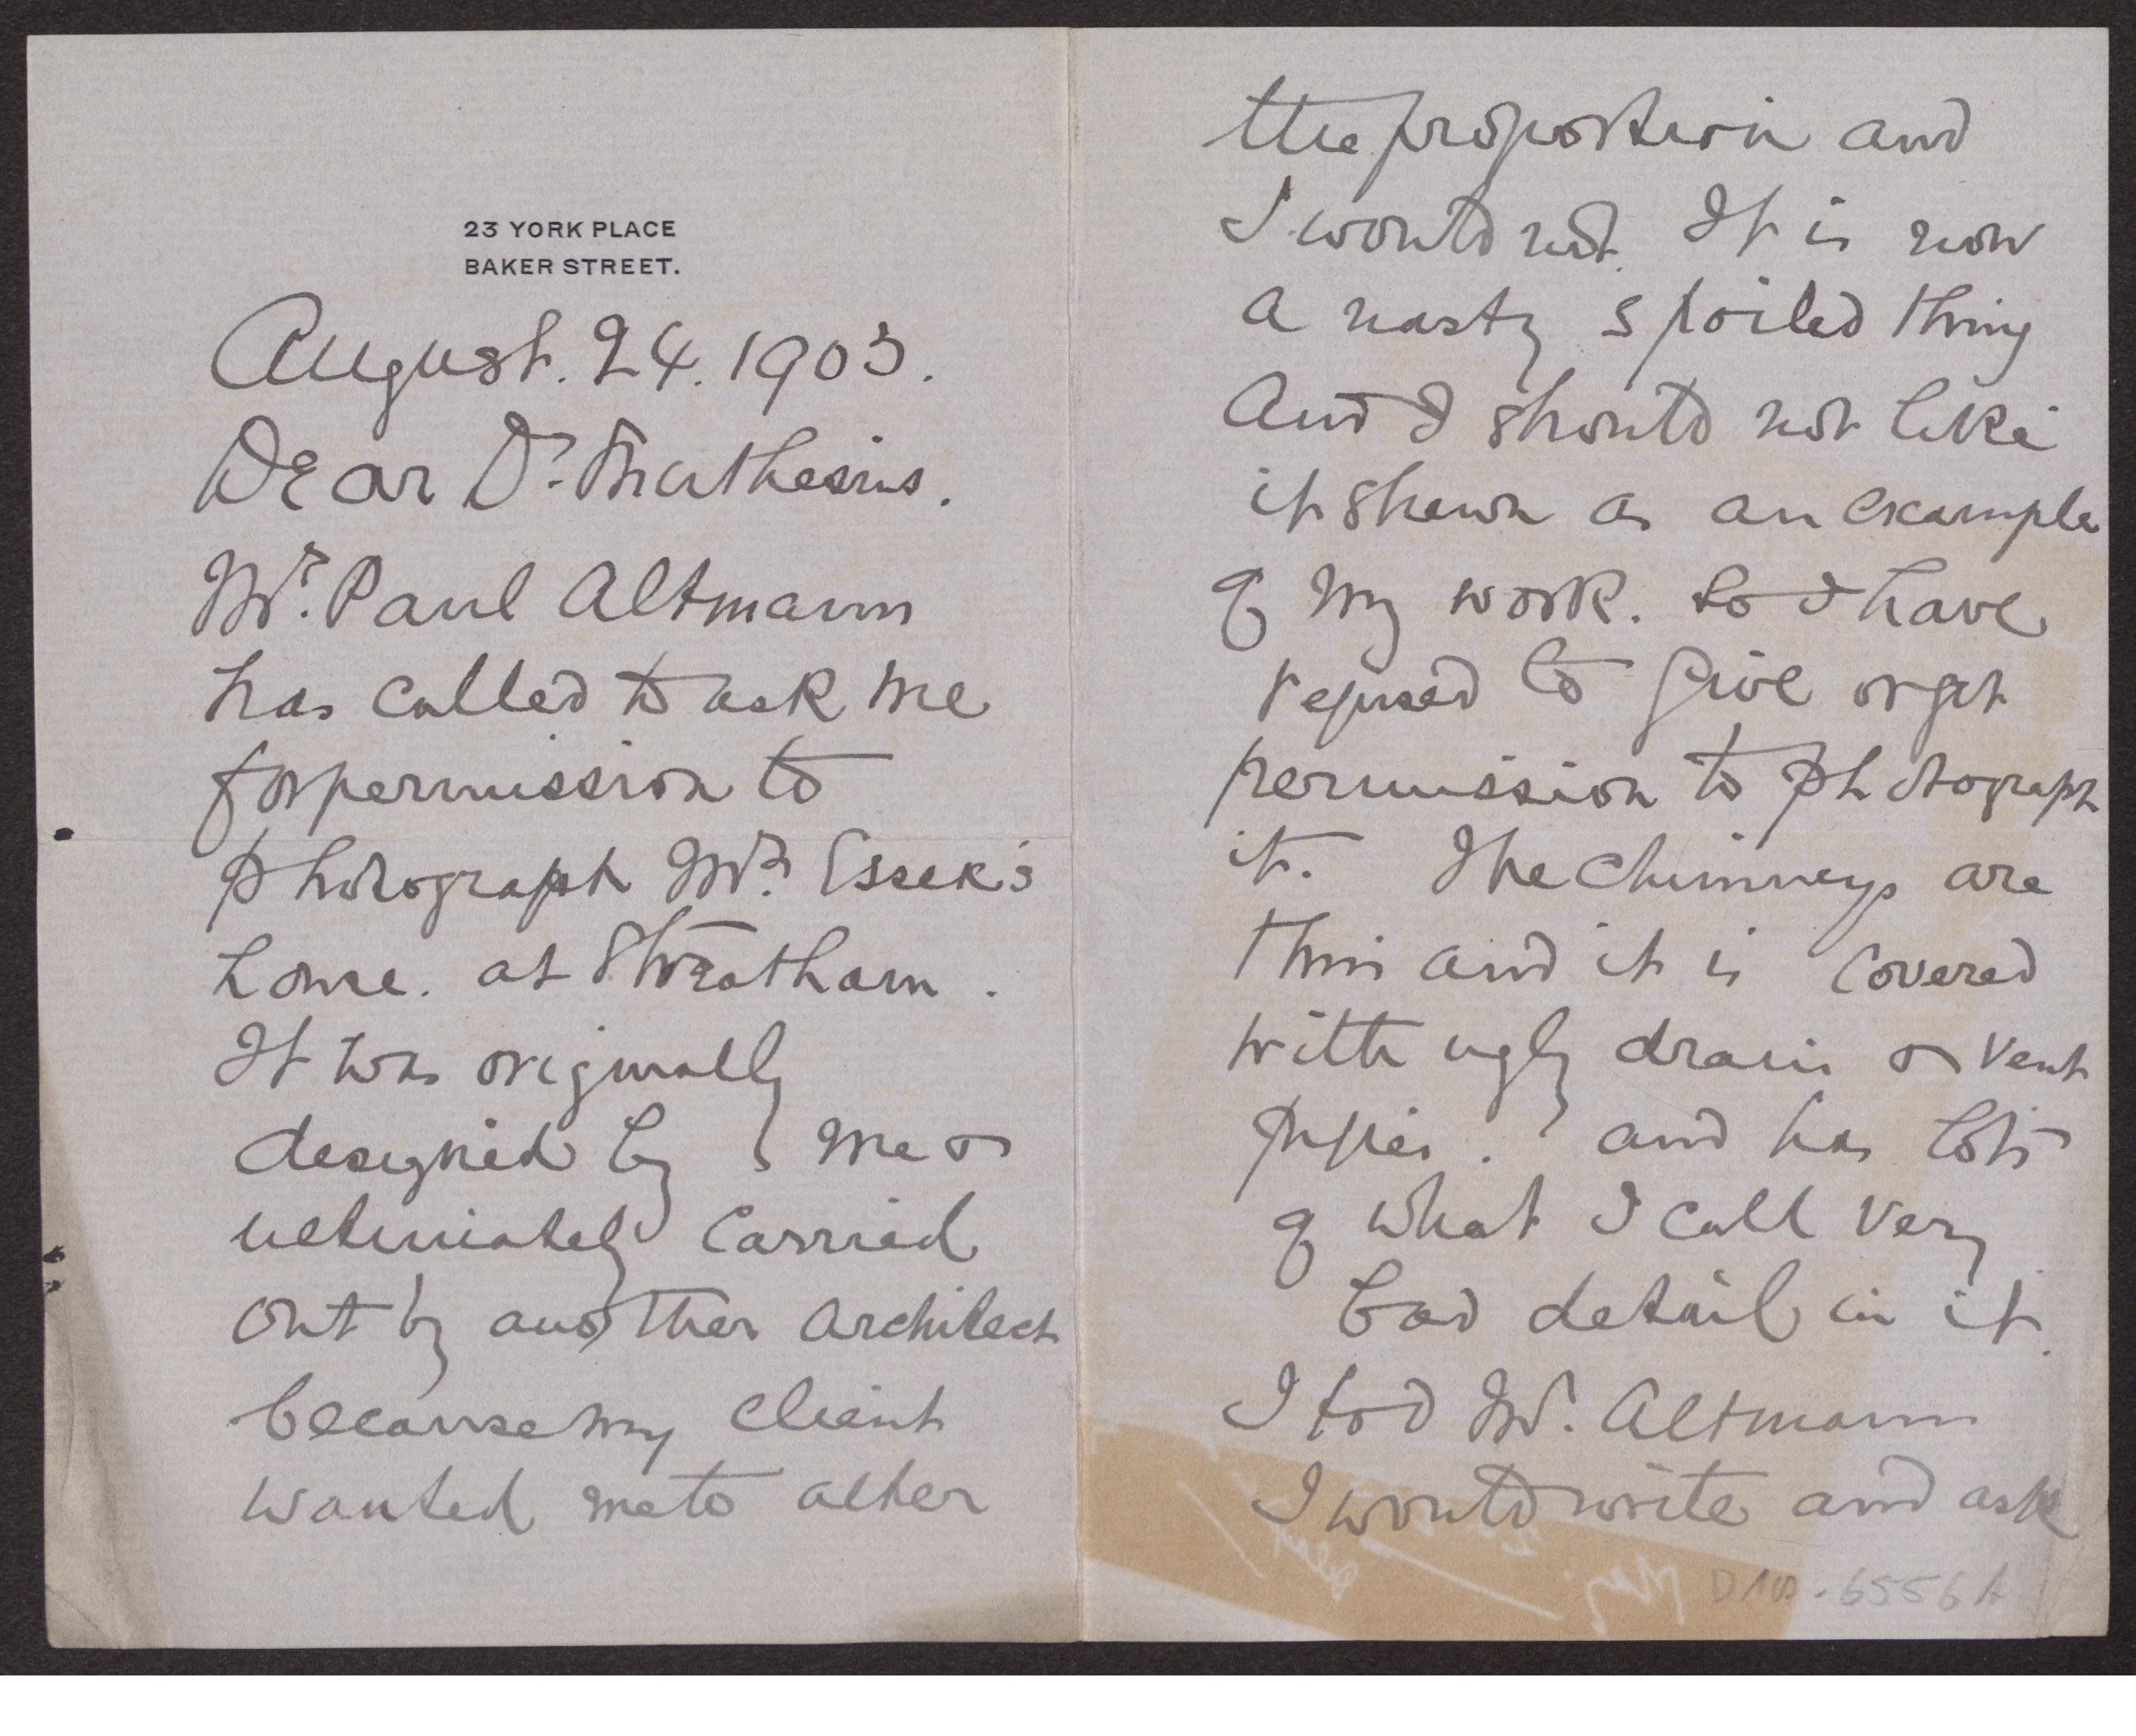 23 YORK PLACE
BAKER STREET.
August. 24. 1903.
Dear Dr. Muthesius.
Mr. Paul Altmann
has called to ask me
for permission to
photograph Mr. Essex's
house. at Streatham.
It was originally
designed by me &
ultimately carried
out by another architect
because my client
wanted me to alter
the proportion and
I would not. It is now
a nasty spoiled thing
and I should not like
it shewn as an example
of my work. So I have
refused to give or get
permission to photograph
it. The chimneys are
thin and it is covered
with ugly drain & vent
pipes. and has lots
of what I call very
bad detail in it.
I told Mr. Altmann
I would write and ask